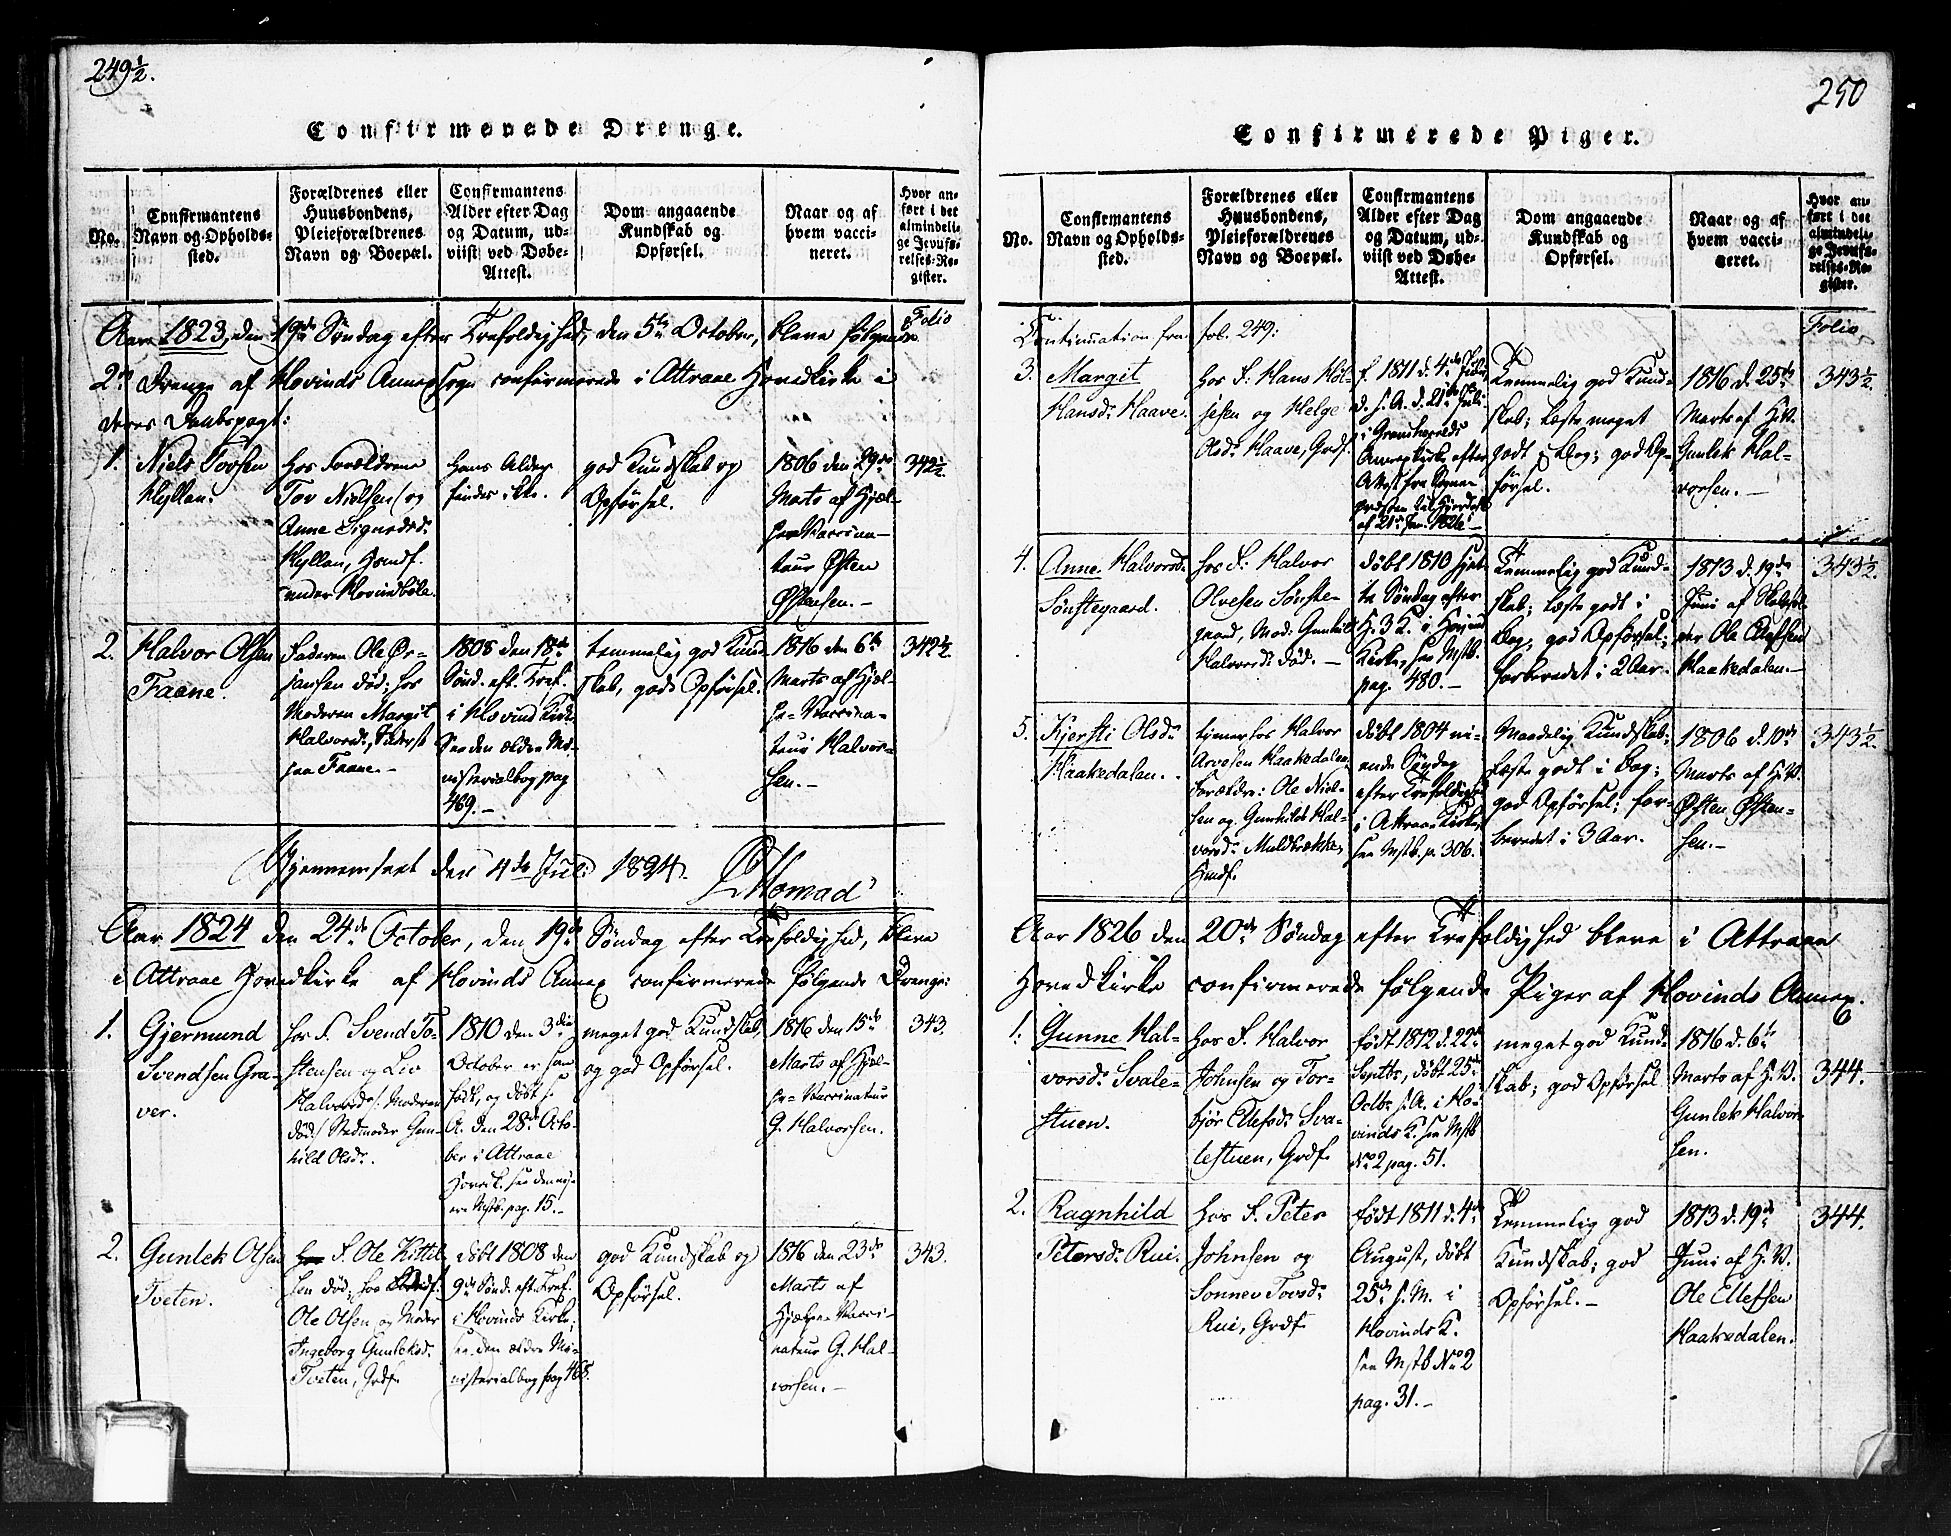 249½.
Confirmerede Drenge.
No.
Confirmantens
Navn og Opholds-
sted.
Forældrenes eller
Huusbondens,
Pleieforældrenes
Navn og Boepæl.
Confirmantens
Alder efter Dag
og Datum, ud-
viist ved Døbe-
Attest.
Dom angaaende
Kundskab og
Opførsel.
Naar og af
hvem vacci-
neret.
Hvor an-
ført i det
almindeli-
ge Jevnfø-
relses-Re-
gister.
Folio
Aar 1823, den 19de Søndag efter Trefoldighed, den 5te October, bleve følgende
2de Drenge af Hovinds Annexsogn confirmerede i Attraae Hovedkirke i
deres Daabspagt:
1.
Niels Torsen
Hyllen.
hos Forældrene
Tov Nielsen og
Anne Sigurdsdr
Hyllen, Huusf.
under Hovindbøle.
Hans Alder
findes ikke.
god Kundskab og
Opførsel.
1806 den 29de
Marts af Hjæl-
pevaccina-
teur Østen
Østensen.-
342½
2.
Halvor Olsen
Faane.
Faderen Ole Ør-
jansen død; hos
Moderen Margit
Halvorsdr,
paa Faane.-
1808 den 18de
Sønd. eft. Tref.
i Hovind Kirke
See den ældre Mi-
nisterialbog pag
469.-
temmelig god Kund-
skab, gode Opførsel.
1816 den 6te
Marts af Hjæl-
pe-Vaccina-
teur Halvor-
sen.-
342½
Gjennemseet den 4de Juli 1824.
Homad
Aar 1824 den 24de October, den 19de Søndag efter Trefoldighed, bleve
i Attraae Hovedkirke af Hovinds Annex confirmerede følgende Drenge:
1.
Gjermund
Svendsen Gra-
ver.
hos F. Svend To-
stensen og Liv
Halvorsdr/: Moderen
død:/ Stedmoder Gun-
hild Olsdr.
1810 den 3die
October er han
født, og døbt s.
A. den 28de Octo-
ber i Attraae
Hovedk. see den nye-
re Mstb. pag. 15.-
meget god Kundskab,
og god Opførsel.
1816 den 15de
Marts af Hjæl-
pe-Vaccinateur
G. Halvorsen.
343.
2.
Gunlek Olsen
Tveten.
F. Ole Kittil-
sen død, hos
Ole Olsen og Moder
Ingeborg Gunleksdr.
Tveten, Grdf.
døbt 1808 den
9de Sønd. eft. Tref.
i Hovinds Kirke;
see den ældre Mi-
nisterialbog pag 468.
god Kundskab og
Opførsel.
1816 den 23de
Marts af
Hjælpe-Vacci-
nateur G. Hal-
vorsen.-
343.
250
Confirmerede Piger.
No.
Confirmantens
Navn og Opholds-
sted.
Forældrenes eller
Huusbondens,
Pleieforældrenes
Navn og Boepæl.
Confirmantens
Alder efter Dag
og Datum, ud-
viist ved Døbe-
Attest.
Dom angaaende
Kundskab og
Opførsel.
Naar og af
hvem vacci-
neret.
Hvor an-
ført i det
almindeli-
ge Jevnfø-
relses-Re-
gister.
Continuation fra fol. 249:
Folio
3.
Margit
Hansdr Haave.
hos F. Hans Høl-
jesen og Helge
Olsdr Haave, Grdf.
f. 1811 d. 4de
d. s. A. d. 21de Juli
i Gransherreds
Annexkirke efter
Attest fra Sogne-
præsten til Hjerdal
af 21de Jan. 1826.-
Temmelig god Kund-
skab; læste meget
godt i Bog; god Op-
førsel.
1816 d. 25de
Marts af H.V.
Gunlek Hal-
vorsen.-
343½
4.
Anne Halvorsdr
Sønstegaard.
hos F. Halvor
Olvesen Sønste-
gaard, Mod: Gunhild
Halvorsdr død.-
døbt 1810 sjet-
te Søndag efter
H. 3 K. i Hovind
Kirke, see Mstb.
pag. 480.-
Temmelig god Kund-
skab; læste godt i
Bog, god Opførsel;
forberedet i 2 Aar.
1813 d. 19de
Juni af Skolehol-
der Ole Ellefsen
Haakedalen.-
343½.
5.
Kjersti Olsdr
Haakedalen.
tjener hos Halvor
Arvesen Haakedalen.
Forældre: Ole Niel-
sen og Gunhild Hal-
vorsdr Muldbrække,
Huusf.
døbt 1804 ni-
ende Søndag
efter Trefoldighed
i Attraae Kirke,
see Mstb. p. 306.
Maadelig Kundskab;
læste godt i Bog;
god Opførsel; for-
beredet i 3 Aar.
1806 d. 10de
Marts af H.V.
Østen Østen-
sen.-
343½.
Aar 1826 den 20de Søndag efter Trefoldighed bleve i Attraae
Hovedkirke confirmerede følgende Piger af Hovinds Annex.
1.
Gunne Hal-
vorsdr Svale-
stuen.
Hos F. Halvor
Johnsen og Tor-
bjør Ellefsdr Sva-
lestuen, Grdf.
født 1812 d. 22de
Septbr, døbt 25de
Octbr s. A. i Ho-
vinds K. see Mstb
No 2 pag. 51.
meget god Kund-
skab; god Opførsel
1816 d. 6te
Marts af H.V.
Gunlek Halvor-
sen.
344.
2.
Ragnhild
Petersdr Rui.
Hos F. Peter
Johnsen og
Sonnev Tovsdr
Rui, Grdf.
født 1811 d. 4de
August, døbt
25de s. M. i
Hovinds K.
see Mstb No 2
pag. 31.-
Temmelig god
Kundskab; god
Opførsel.-
1813 d. 19de
Juni af H.V.
Ole Ellefsen
Haakedalen.
344.